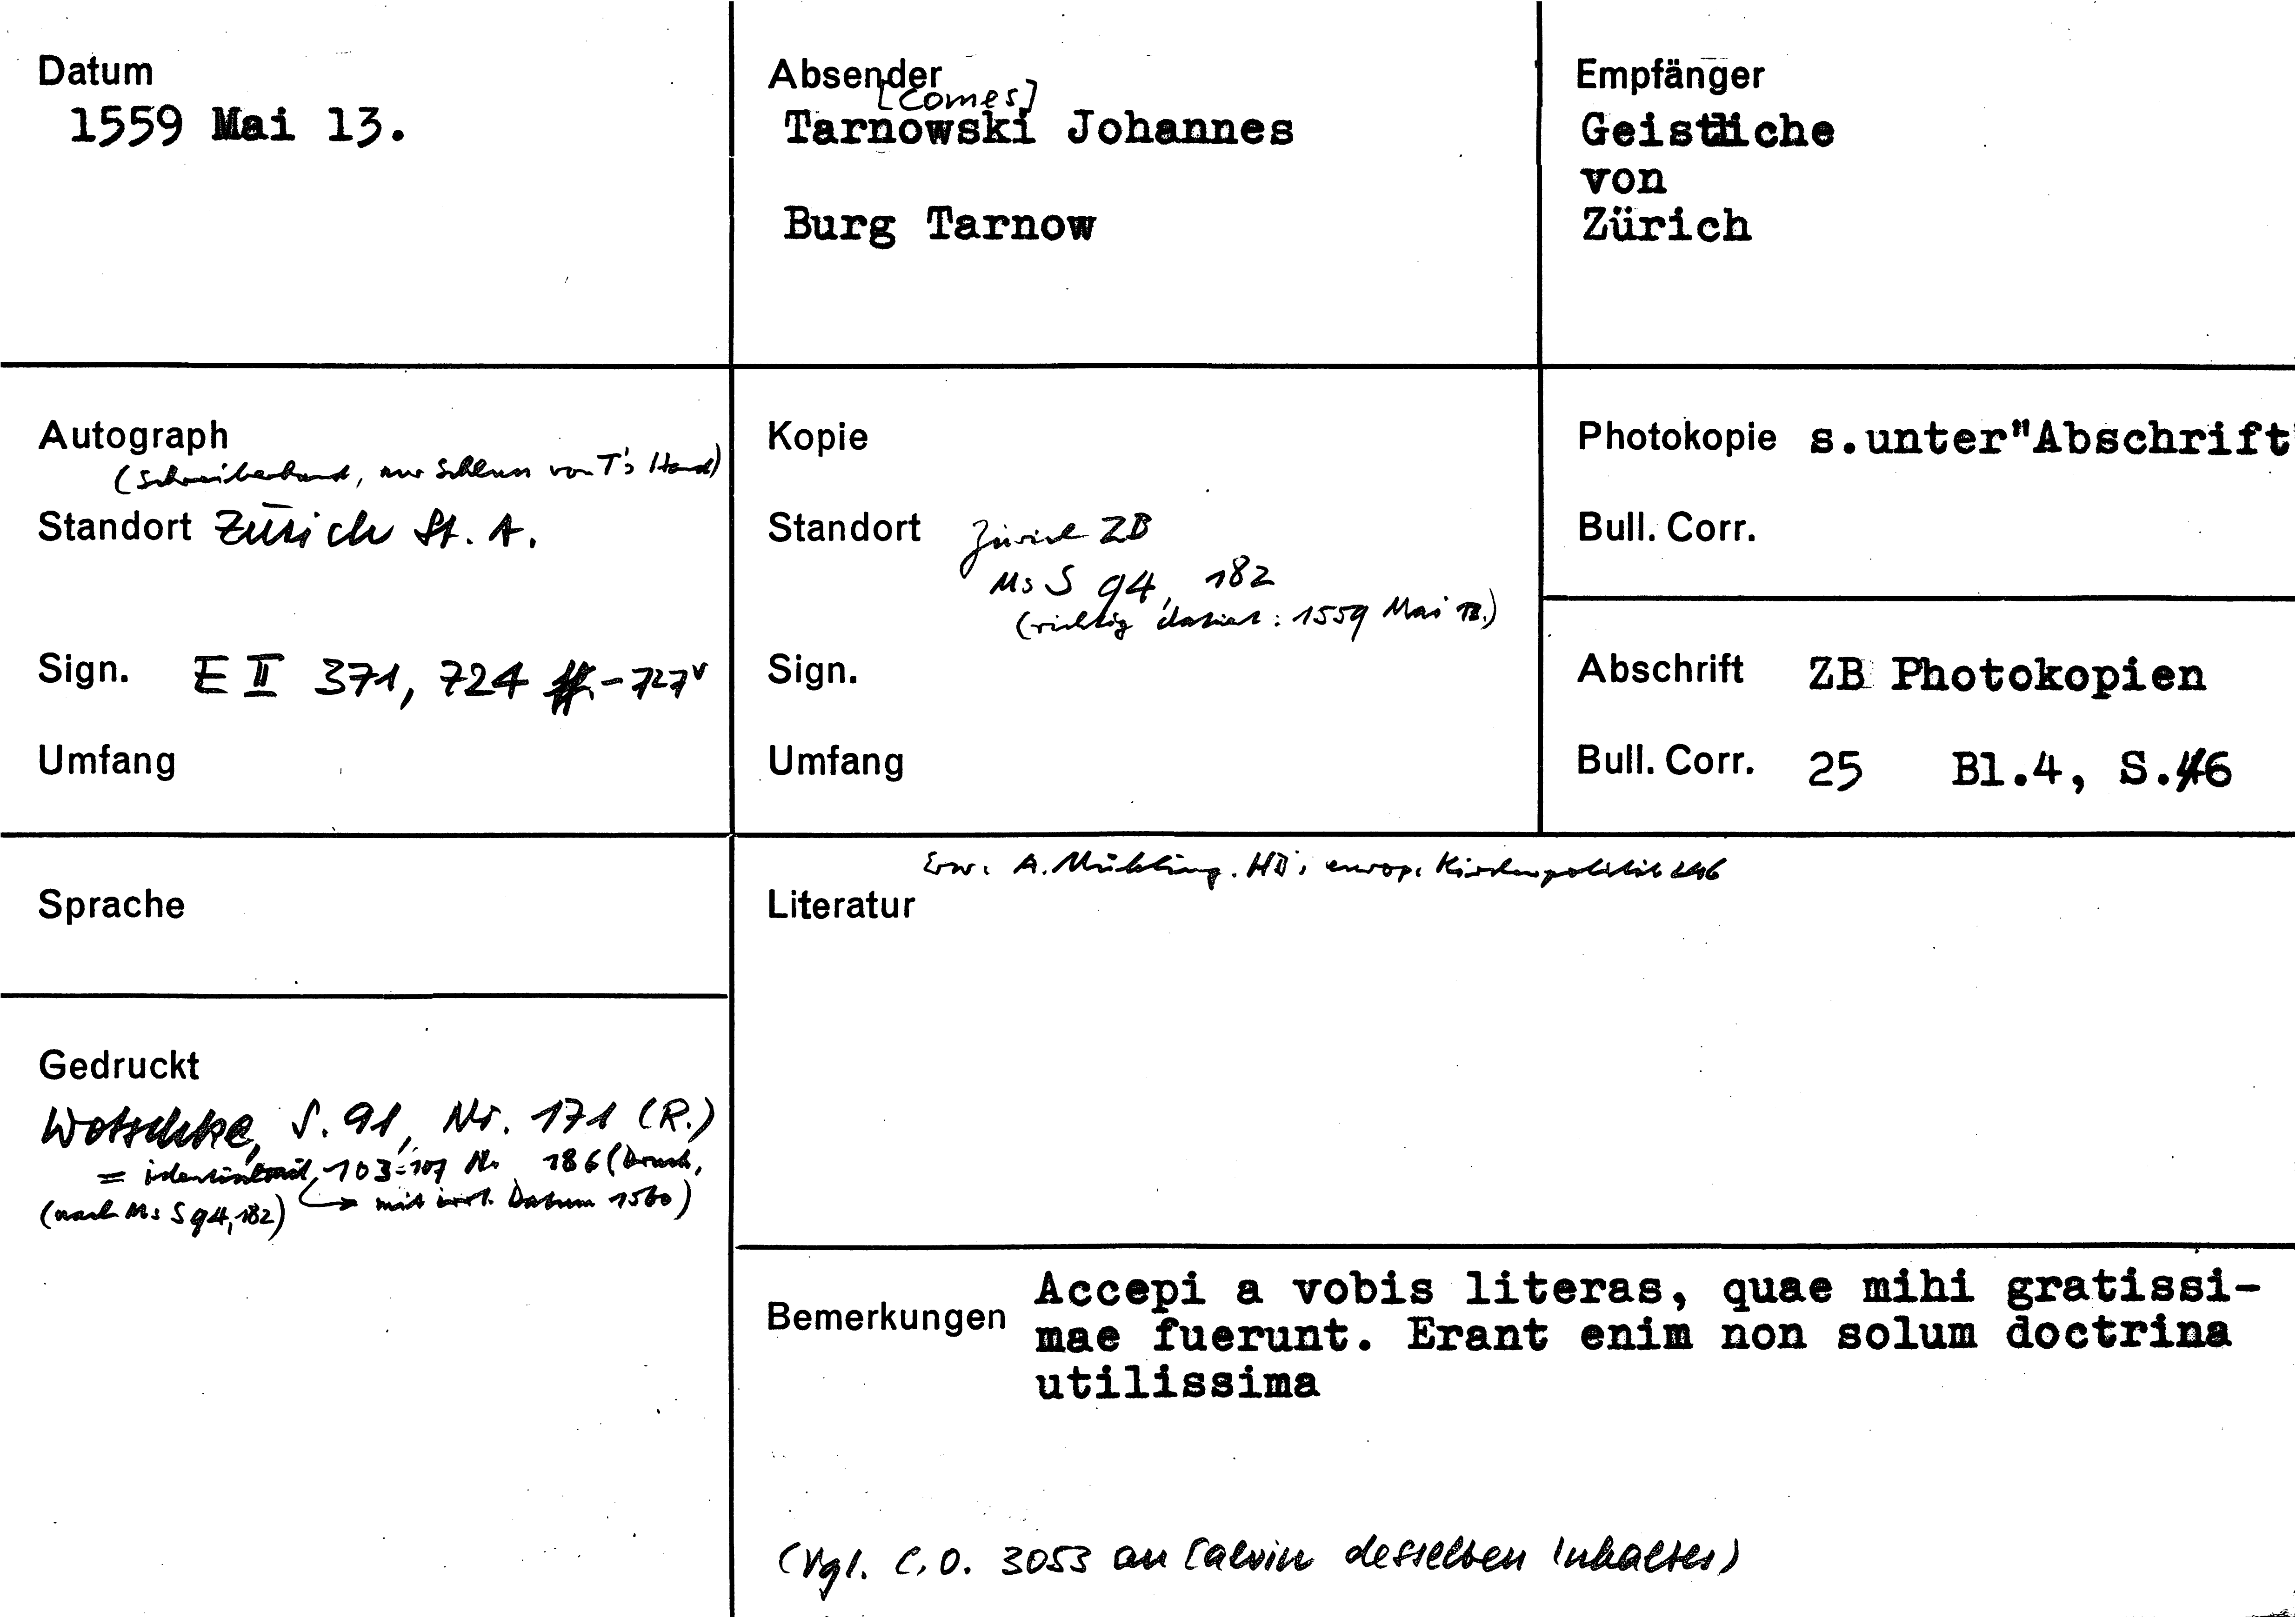 Datum
1559 Mai 13.
Absender
[Comes]
Tarnowski Johannes
Burg Tarnow
Empfänger
Geistliche
von
Zürich
Autograph
(Schreiberhand, nur Schluss von T's Hand)
Standort Zürich St. A.
Sign. E II 371, 724 ff. - 727v
Umfang
Kopie
Standort Zürich ZB
Ms S 94, 182
(richtig datiert: 1559 Mai 13.)
Sign.
Umfang
Photokopie s.unter"Abschrift"
Bull. Corr.
Abschrift ZB Photokopien
Bull. Corr. 25 Bl.4, S.46
Sprache
Erw. A. Mühling. HB's europ. Kirchenpolitik 246
Literatur
Gedruckt
Wotschke, S. 91, Nr. 171 (R.)
= identisch mit 103-107 Nr. 186 (Druck,
(nach Ms S 94, 182) → mit irrt. Datum 1560)
Bemerkungen Accepi a vobis literas, quae mihi gratissi-
mae fuerunt. Erant enim non solum doctrina
utilissima
(Vgl. C.O. 3053 an Calvin desselben Inhaltes)